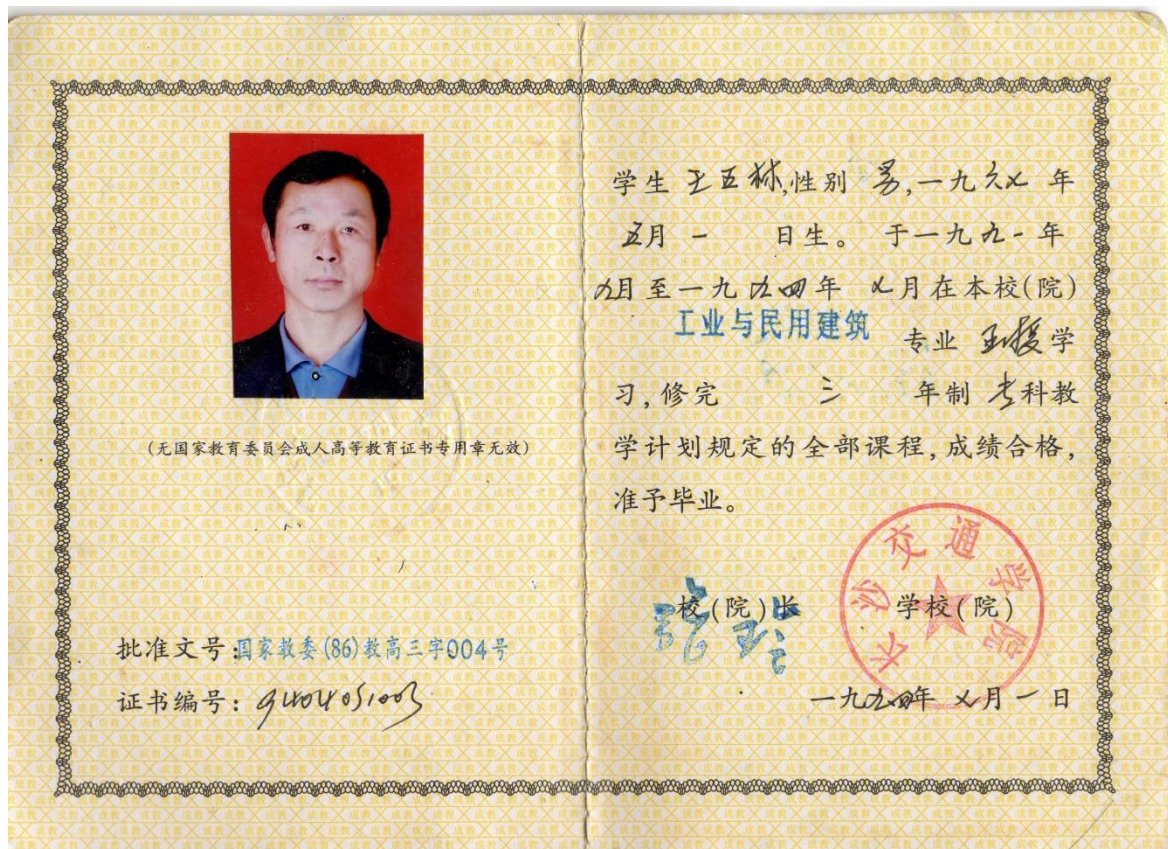 (无国家教育委员会成人高等教育证书专用章无效)
批准文号:国家教委(86)教高三字004号
证书编号:9404051003
学生 王五林,性别 男,一九六七 年
五月 一 日生。 于一九九一年
九月至一九九四年 七月在本校(院)
工业与民用建筑 专业 函授学
习,修完 三 年制 专科教
学计划规定的全部课程,成绩合格,
准予毕业。
校(院)长 学校(院)
长沙交通学院
一九九四年 七月一日